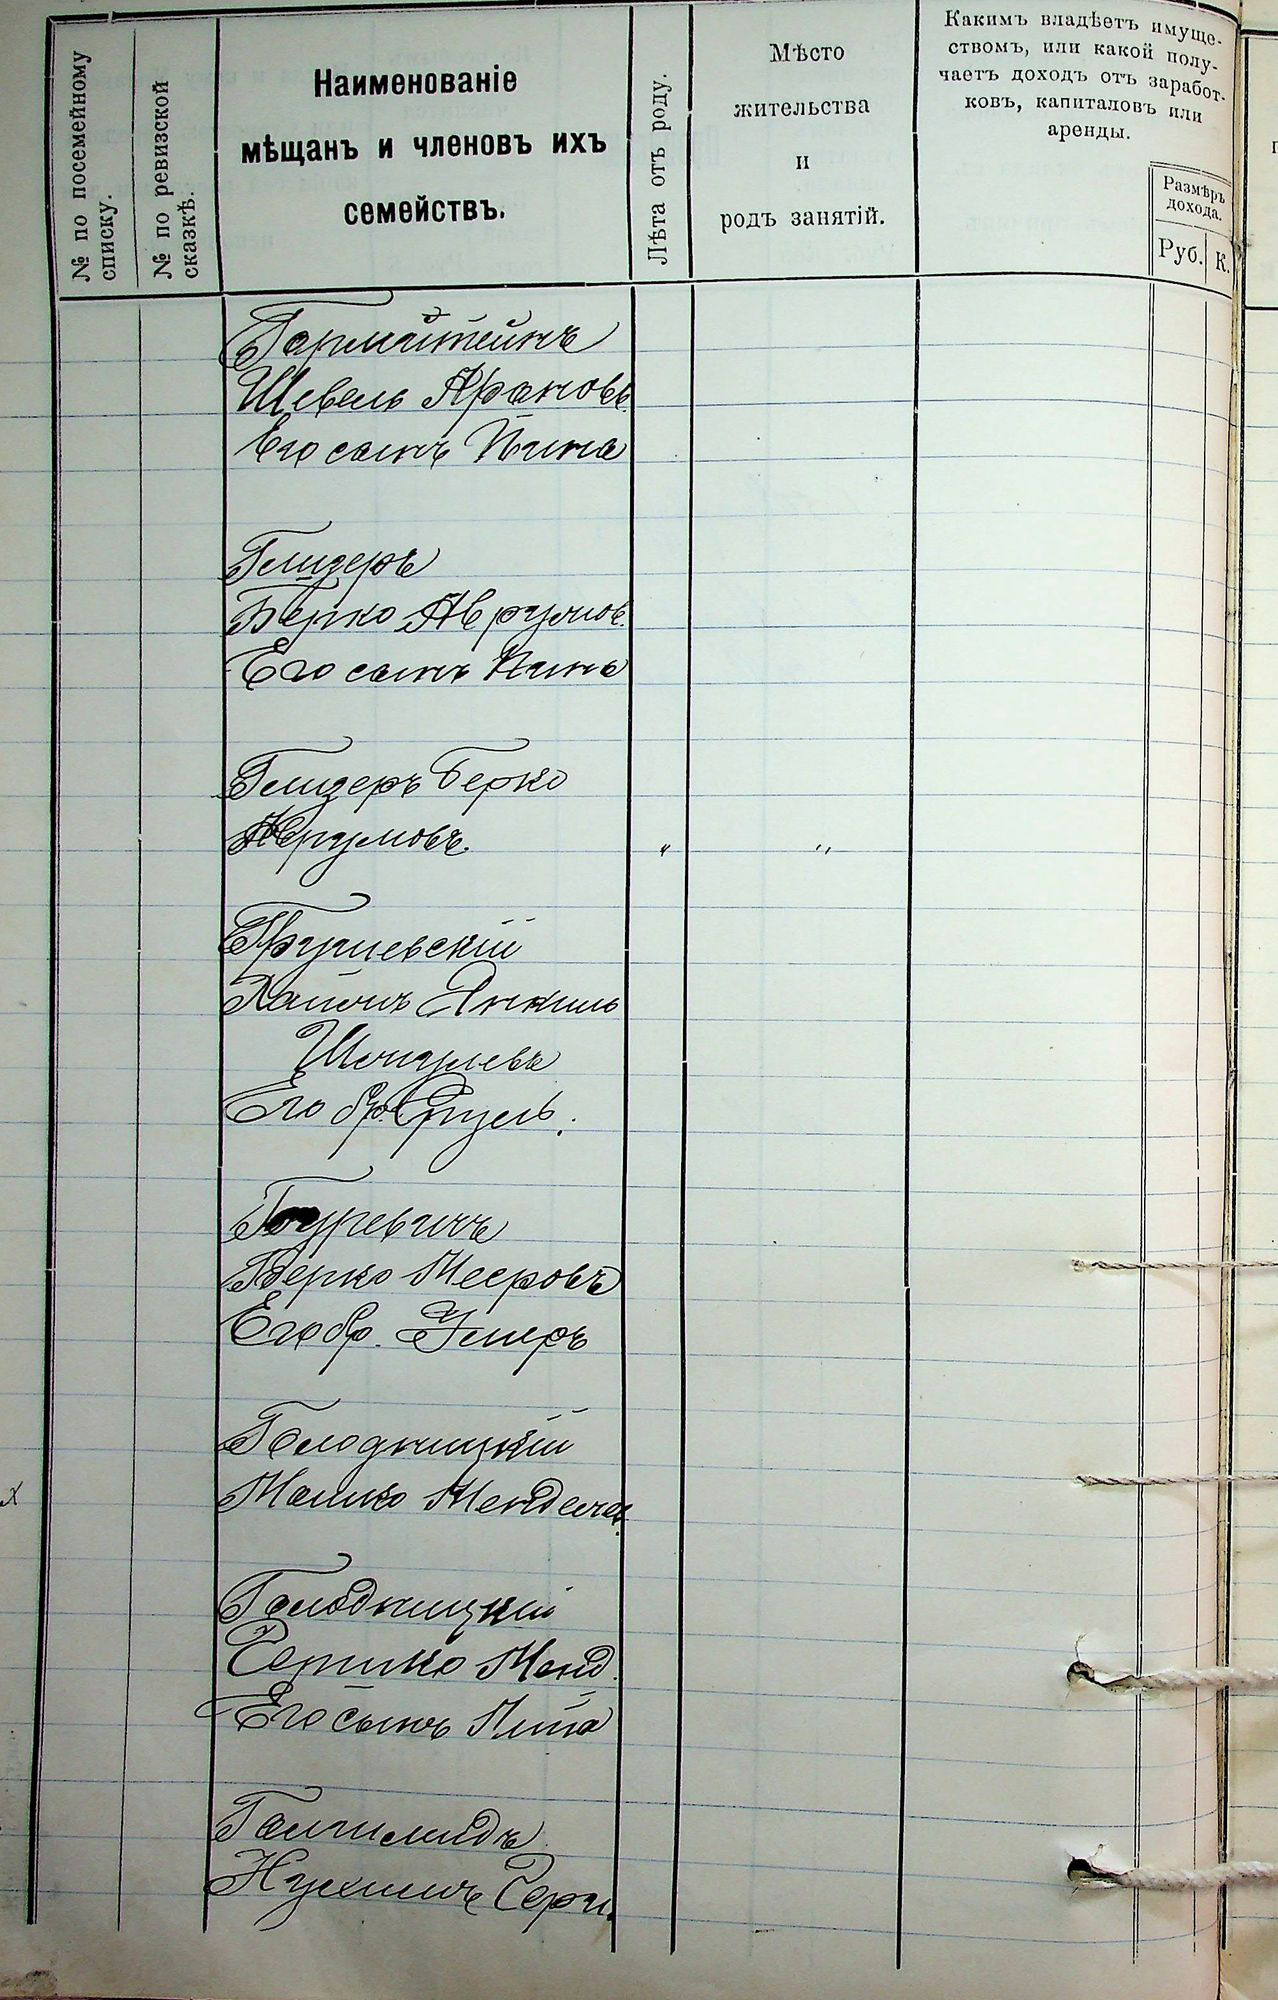 № по посемейному
списку.
№ по ревизской
сказкѣ.
Наименованіе
мѣщанъ и членовъ ихъ
семействъ.
Лѣта отъ роду.
Мѣсто
жительства
и
родъ занятій.
Какимъ владѣетъ имуще-
ствомъ, или какой полу-
чаетъ доходъ отъ заработ-
ковъ, капиталовъ или
аренды.
Размѣръ
дохода.
Руб.
К.
Гармштейнъ
Шевель Ароновъ
Его сынъ Пина
Глизеръ
Берко Аврумов.
Его сынъ
Глизеръ Берко
Аврумовъ. " "
Грушевскій
Хаимъ Янкель
Шмулевъ
Его бр. Сруль.
Гуревичъ
Берко Мееровъ
Его бр.
Голодницкій
Машко Менделев.
Голодницкій
Гершко Менд.
Его сынъ
Нухимъ Герш.